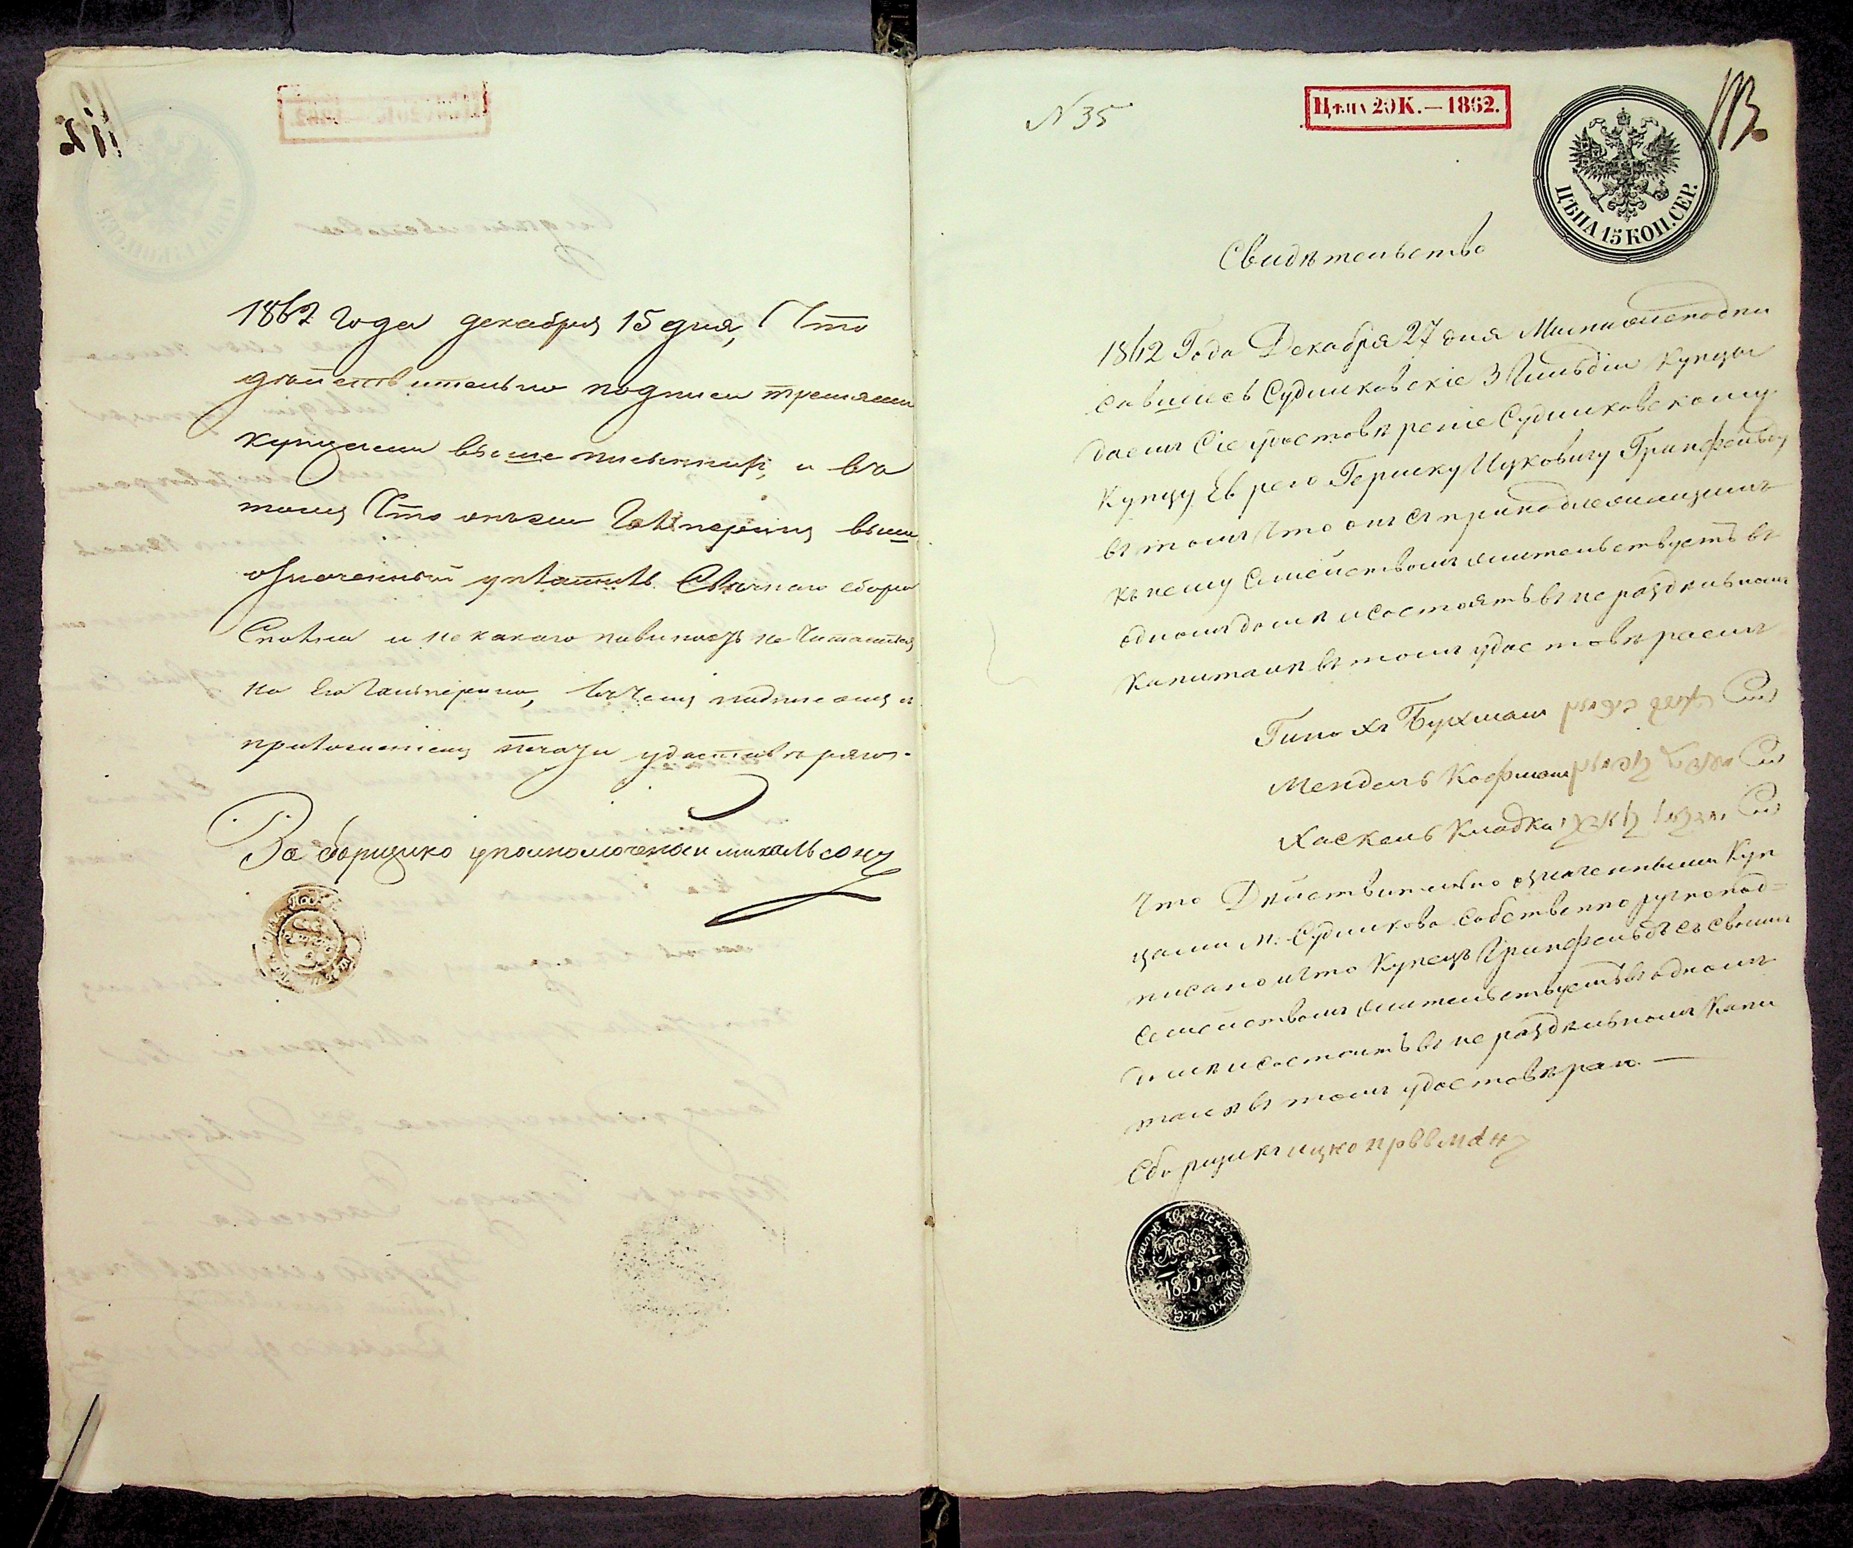 1862 года декабря 15 дня, Что
действительно подписи тремями
купцами выше писанний, и въ
томъ Что
означенный Свѣчнаго сбора
Сполна и некакаго повиность не Читаится
на Его Гальперина, въ чемъ подписомъ и
приложениемъ печати удаставѣряю.
За борщика уполномоченый михельсонъ
N 35
Цѣна 20 К. — 1862.
113.
ЦѢНА 15 КОП. СЕР.
Свидѣтельство
1862 Года Декабря 27 дня Мы ниже подпи
савшиесь Судилковскіе 3 Гильдіи Купцы
даемъ Сіе удостовѣреніе Судилковскому
Купцу Еврею Гершку Ицковичу Гринфельду
въ томъ Что онъ съ принадлежащимъ
къ нему Семействомъ жительствуетъ въ
одномъ домѣ и состоятъ въ не раздѣльномъ
Капиталѣ въ томъ удостовѣраемъ
Бухман
Мендель Кофман
Хаскель Кладка
Что Дѣйствительно означенными Куп
цами м. Судилкова собственно ручно под=
писано и что Купецъ Гринфельдъ съ своимъ
семействомъ жительствуетъ въ одномъ
домѣ и состоитъ въ не раздѣльномъ Капи
талѣ въ томъ удостовѣраю —
Сборщикъ ицко